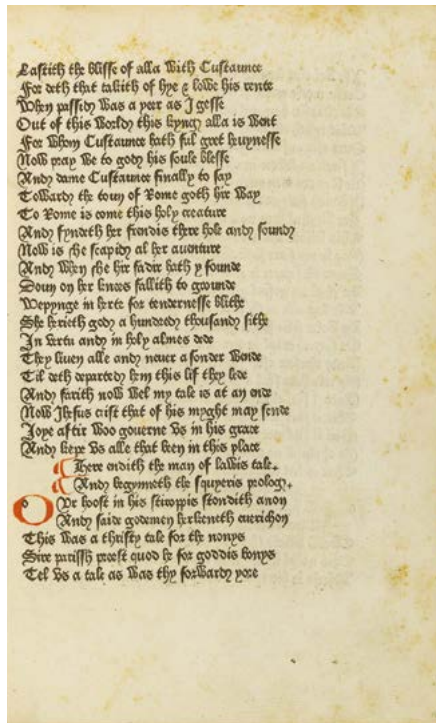 Lastith the blisse of alla with Custaunce
For deth that takith of hye & lowe his rente
When passed was a yeer as I gesse
Out of this world this kyng alla is went
For whom Custaunce hath ful gret heuynesse
Now pray we to god his soule blesse
And dame Custaunce finally to say
Toward the toun of Rome goth hir way
To Rome is come this holy creature
And fyndeth her frendis there hole and sound
Now is she scapid al her auenture
And when she hir fadir hath y founde
Doun on her knees fallith to grounde
Wepynge in herte for tendernesse blithe
She herieth god a hundred thousand sithe
In vertu and in holy almes dede
They liuen alle and neuer a sonder wende
Til deth departed hem this lif they lede
And farith now wel my tale is at an ende
Now Ihesus crist that of his myght may sende
Ioye aftir woo gouerne vs in his grace
And kepe vs alle that been in this place
Here endith the man of lawis tale.
And begynneth the squyeris prolog.
OVr hoost in his stiroppis stondith anon
And saide godemen herkeneth euerichon
This was a thrifty tale for the nonys
Sire parissh preest quod he for goddis bonys
Tel vs a tale as was thy forward yore